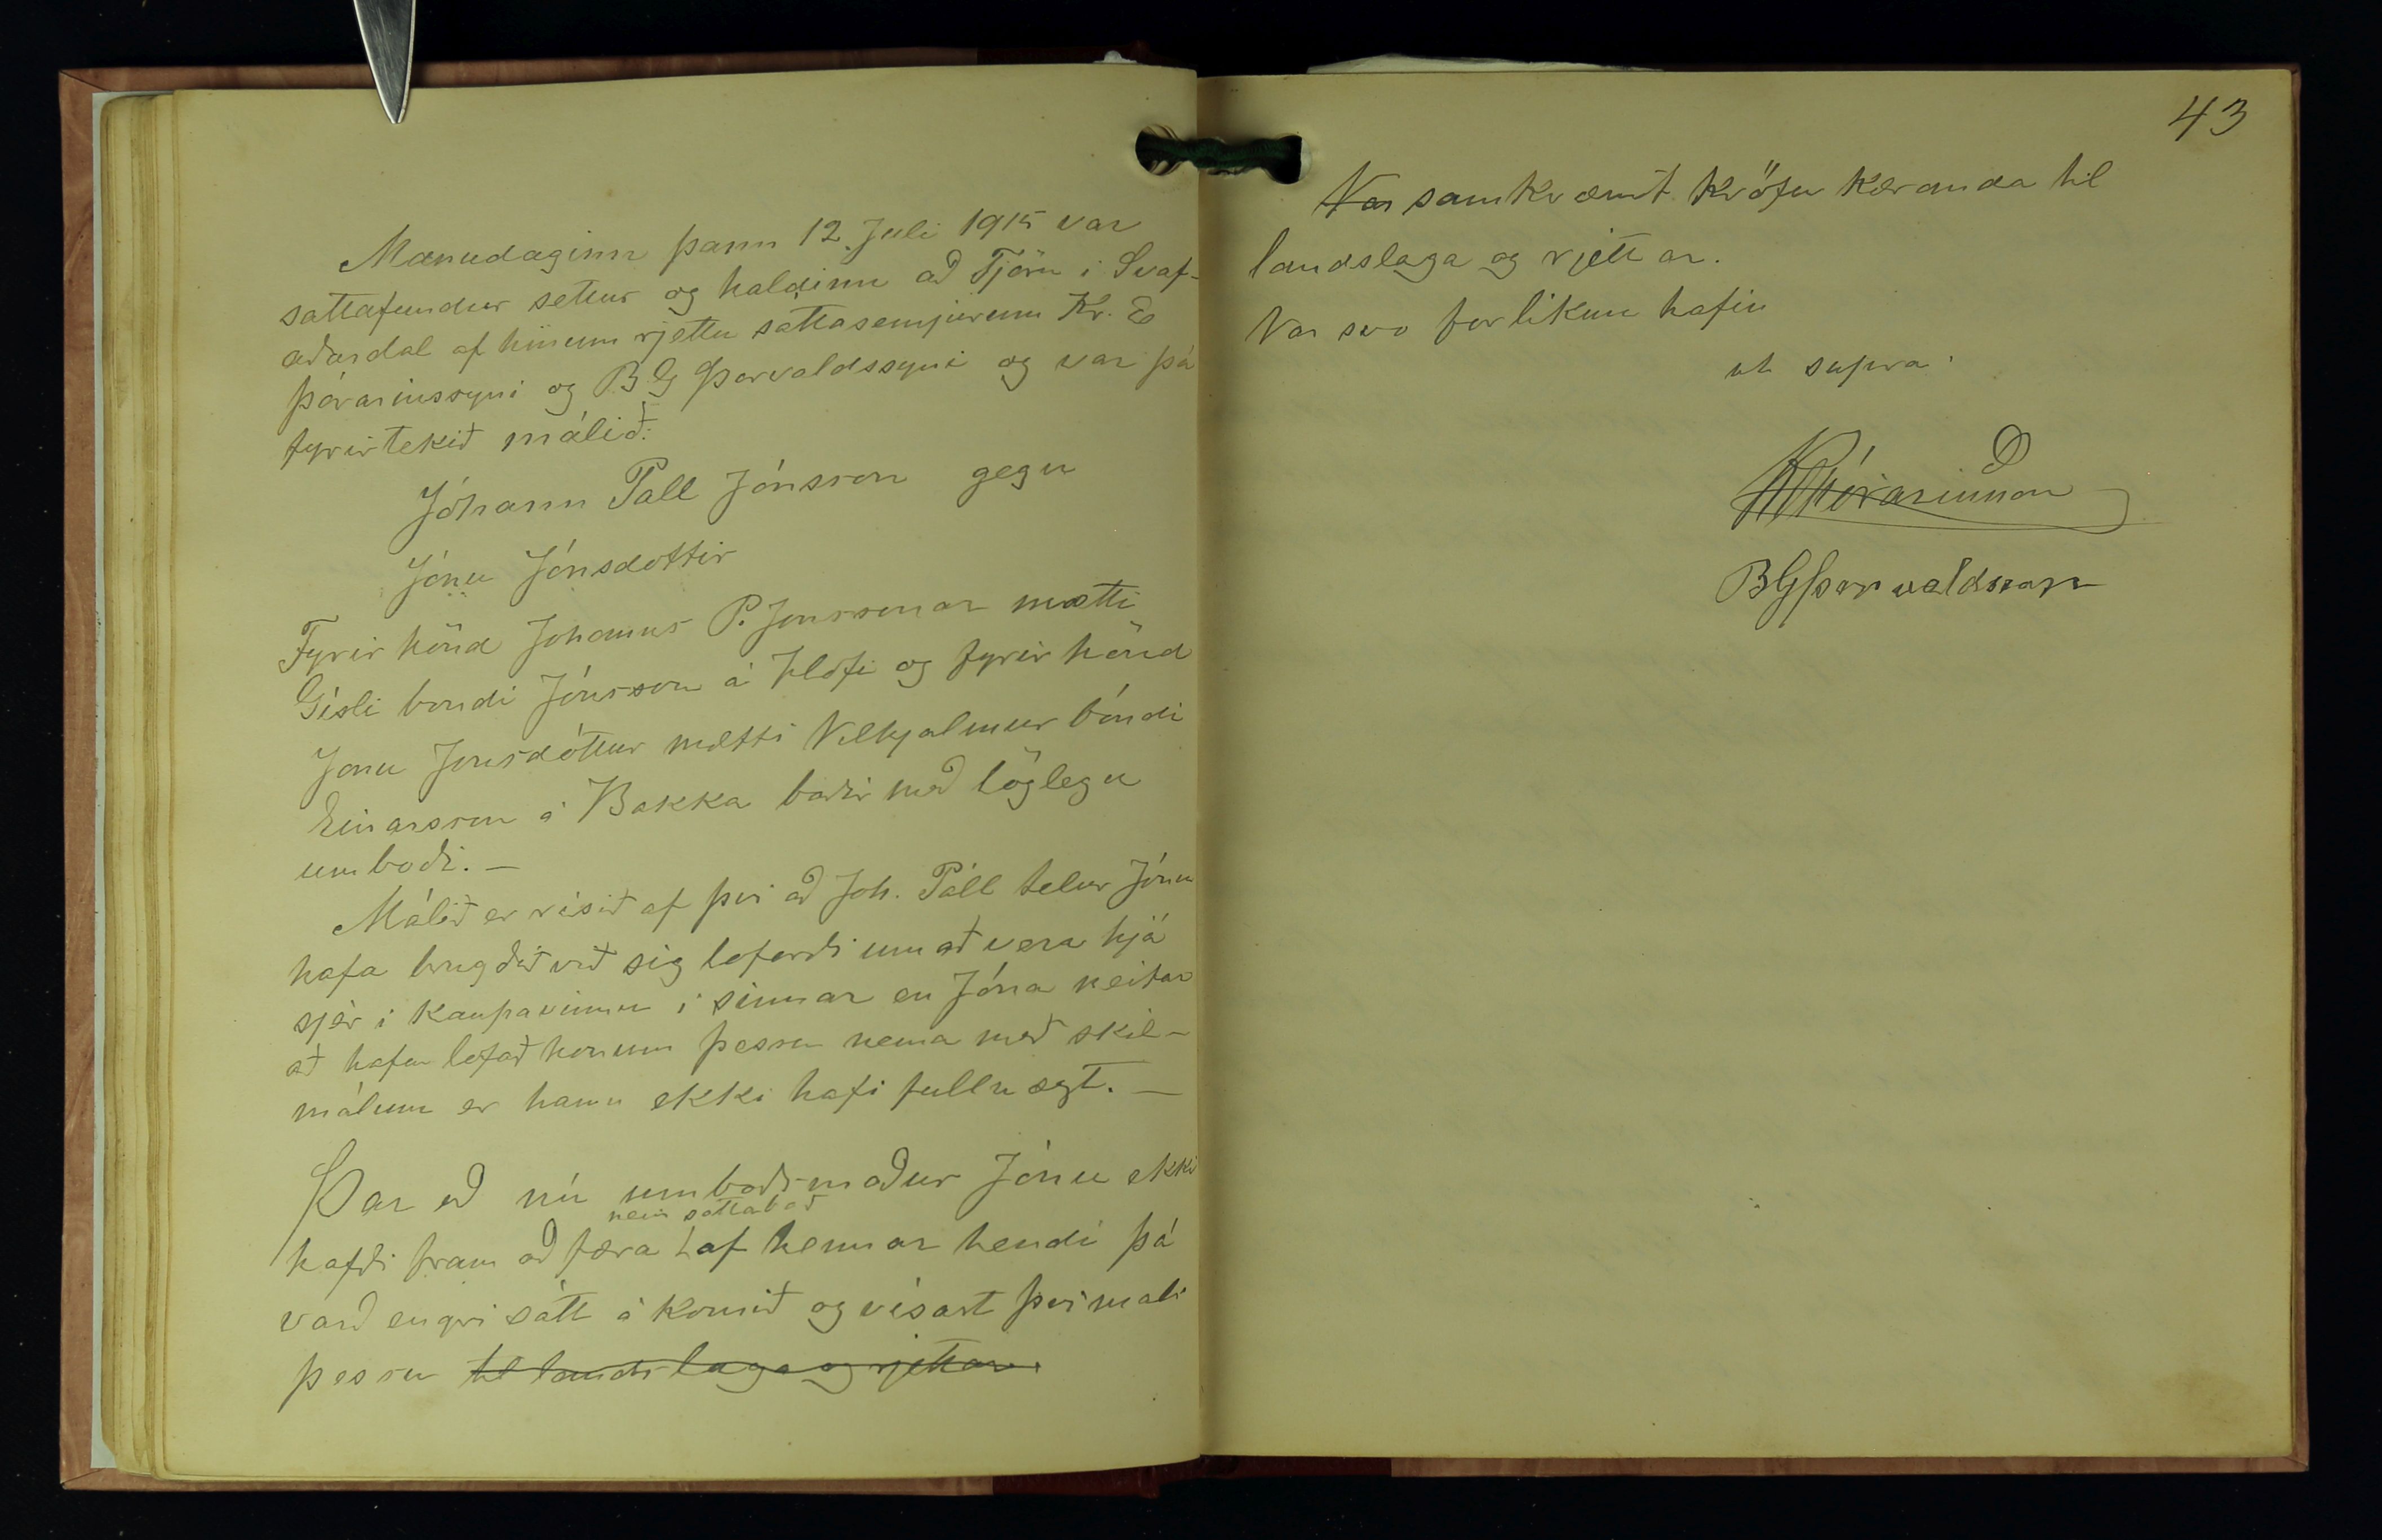 Manudaginn þann 12. Juli 1915 var
sattafundur settur og haldinn að Tjörn i Svaf-
aðardal af hinum rjettu sáttasemjurum Kr. E
Þórarinssyni og B G Þorvaldssyni og var þá
fyrirtekið málið:
Jóhann Pall Jónsson gegn
Jónu Jónsdottir
Fyrir hönd Johanns P. Jonssonar mætti
Gísli bondi Jónsson á Hofi og fyrir hönd
Jonu Jonsdóttur mætti Vilhjalmur bóndi
Einarsson á Bakka baðir með löglegu
umboði. —
Málið er risið af þvi að Joh. Páll telur Jónu
hafa brugðið við sig loforði um að vera hjá
sjer i kaupavinnu i sumar en Jóna neitar
að hafa lofað honum þessu nema með skil-
málum er hann ekki hafi fullnægt. —
Þar eð nú umboðsmaður Jónu ekki
nein sattaboð
hafði fram að færa af hennar hendi þá
varð engri sátt á komið og visast þvi mali
þessu til landslaga og rjettar.
43
Var samkvæmt kröfu kæranda til
landslaga og rjettar.
Var svo forlikun hafin
ut supra
KEÞórarinsson
BGÞorvaldsson